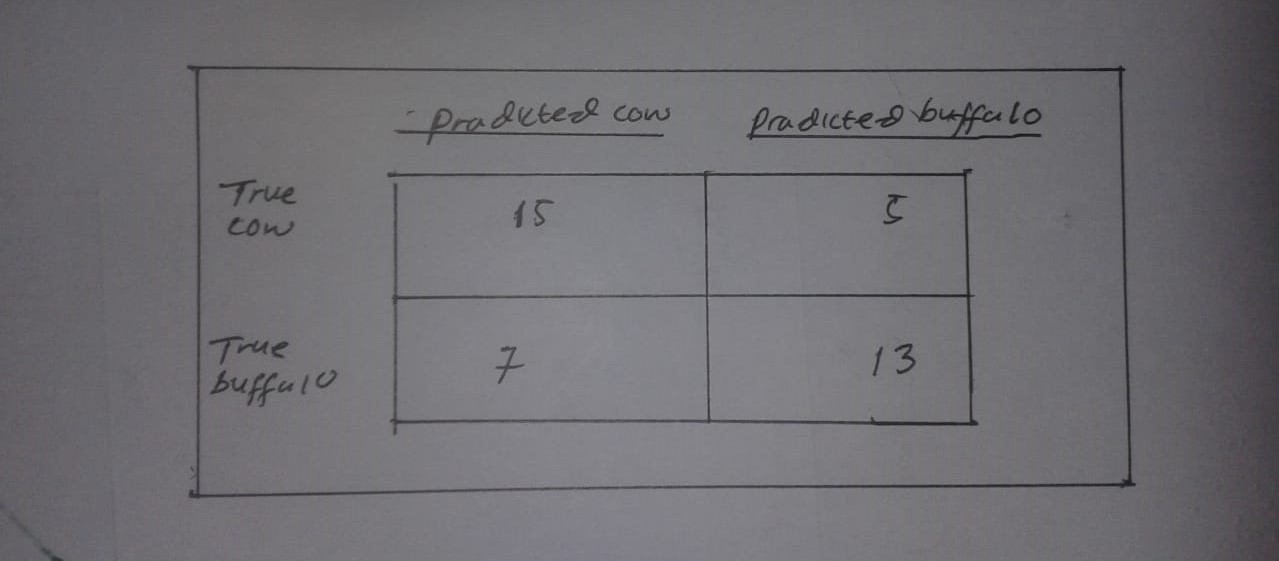 Pradicted cow Pradicted buffalo
True
cow
15 5
True
buffalo
7 13